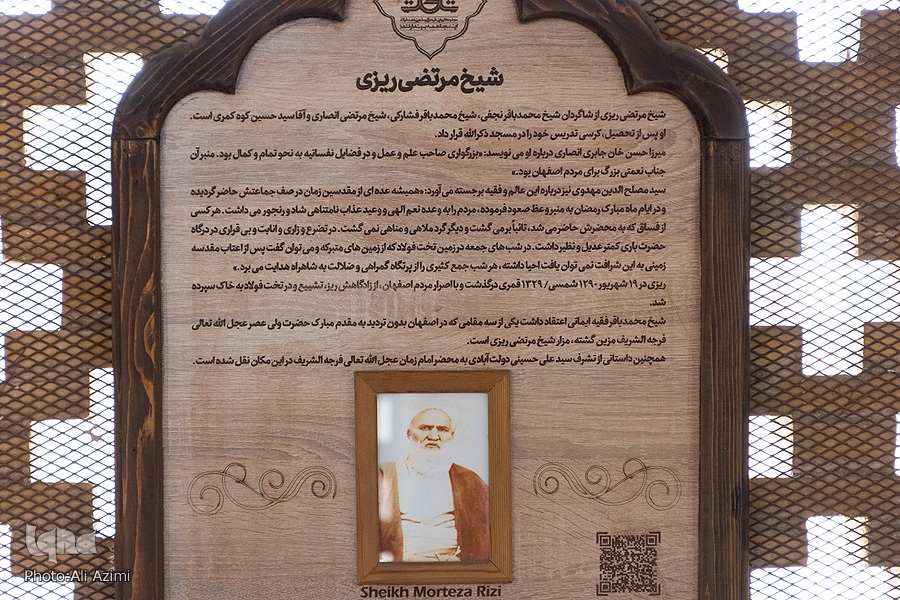 شیخ مرتضی ریزی
شیخ مرتضی ریزی از شاگردان شیخ محمدباقر نجفی، شیخ محمدباقر فشارکی، شیخ مرتضی انصاری و آقا سید حسین کوه کمری است.
او پس از تحصیل، کرسی تدریس خود را در مسجد ذکرالله قرار داد.
میرزا حسن خان جابری انصاری درباره او می نویسد: «بزرگواری صاحب علم و عمل و در فضایل نفسانیه به نحو تمام و کمال بود. منبر آن
جناب نعمتی بزرگ برای مردم اصفهان بود.»
سید مصلح الدین مهدوی نیز درباره این عالم و فقیه برجسته می آورد: «همیشه عده ای از مقدسین زمان در صف جماعتش حاضر گردیده
و در ایام ماه مبارک رمضان به منبر وعظ صعود فرموده، مردم را به وعده نعم الهی و وعید عذاب نامتناهی شاد و رنجور می داشت. هر کسی
از فساق که به محضرش حاضر می شد، تائباً بر می گشت و دیگر گرد ملاهی و مناهی نمی گشت. در تضرع و زاری و انابت و بی قراری در درگاه
حضرت باری کمتر عدیل و نظیر داشت. در شب های جمعه در زمین تخت فولاد که از زمین های متبرکه و می توان گفت پس از اعتاب مقدسه
زمینی به این شرافت نمی توان یافت احیا داشته، هر شب جمع کثیری را از پرتگاه گمراهی و ضلالت به شاهراه هدایت می برد.»
ریزی در ۱۹ شهریور ۱۲۹۰ شمسی / ۱۳۲۹ قمری درگذشت و با اصرار مردم اصفهان، از زادگاهش ریز، تشییع و در تخت فولاد به خاک سپرده
شد.
شیخ محمدباقر فقیه ایمانی اعتقاد داشت یکی از سه مقامی که در اصفهان بدون تردید به مقدم مبارک حضرت ولی عصر عجل الله تعالی
فرجه الشریف مزین گشته، مزار شیخ مرتضی ریزی است.
همچنین داستانی از تشرف سید علی حسینی دولت آبادی به محضر امام زمان عجل الله تعالی فرجه الشریف در این مکان نقل شده است.
Sheikh Morteza Rizi
Iqna
Photo:Ali Azimi